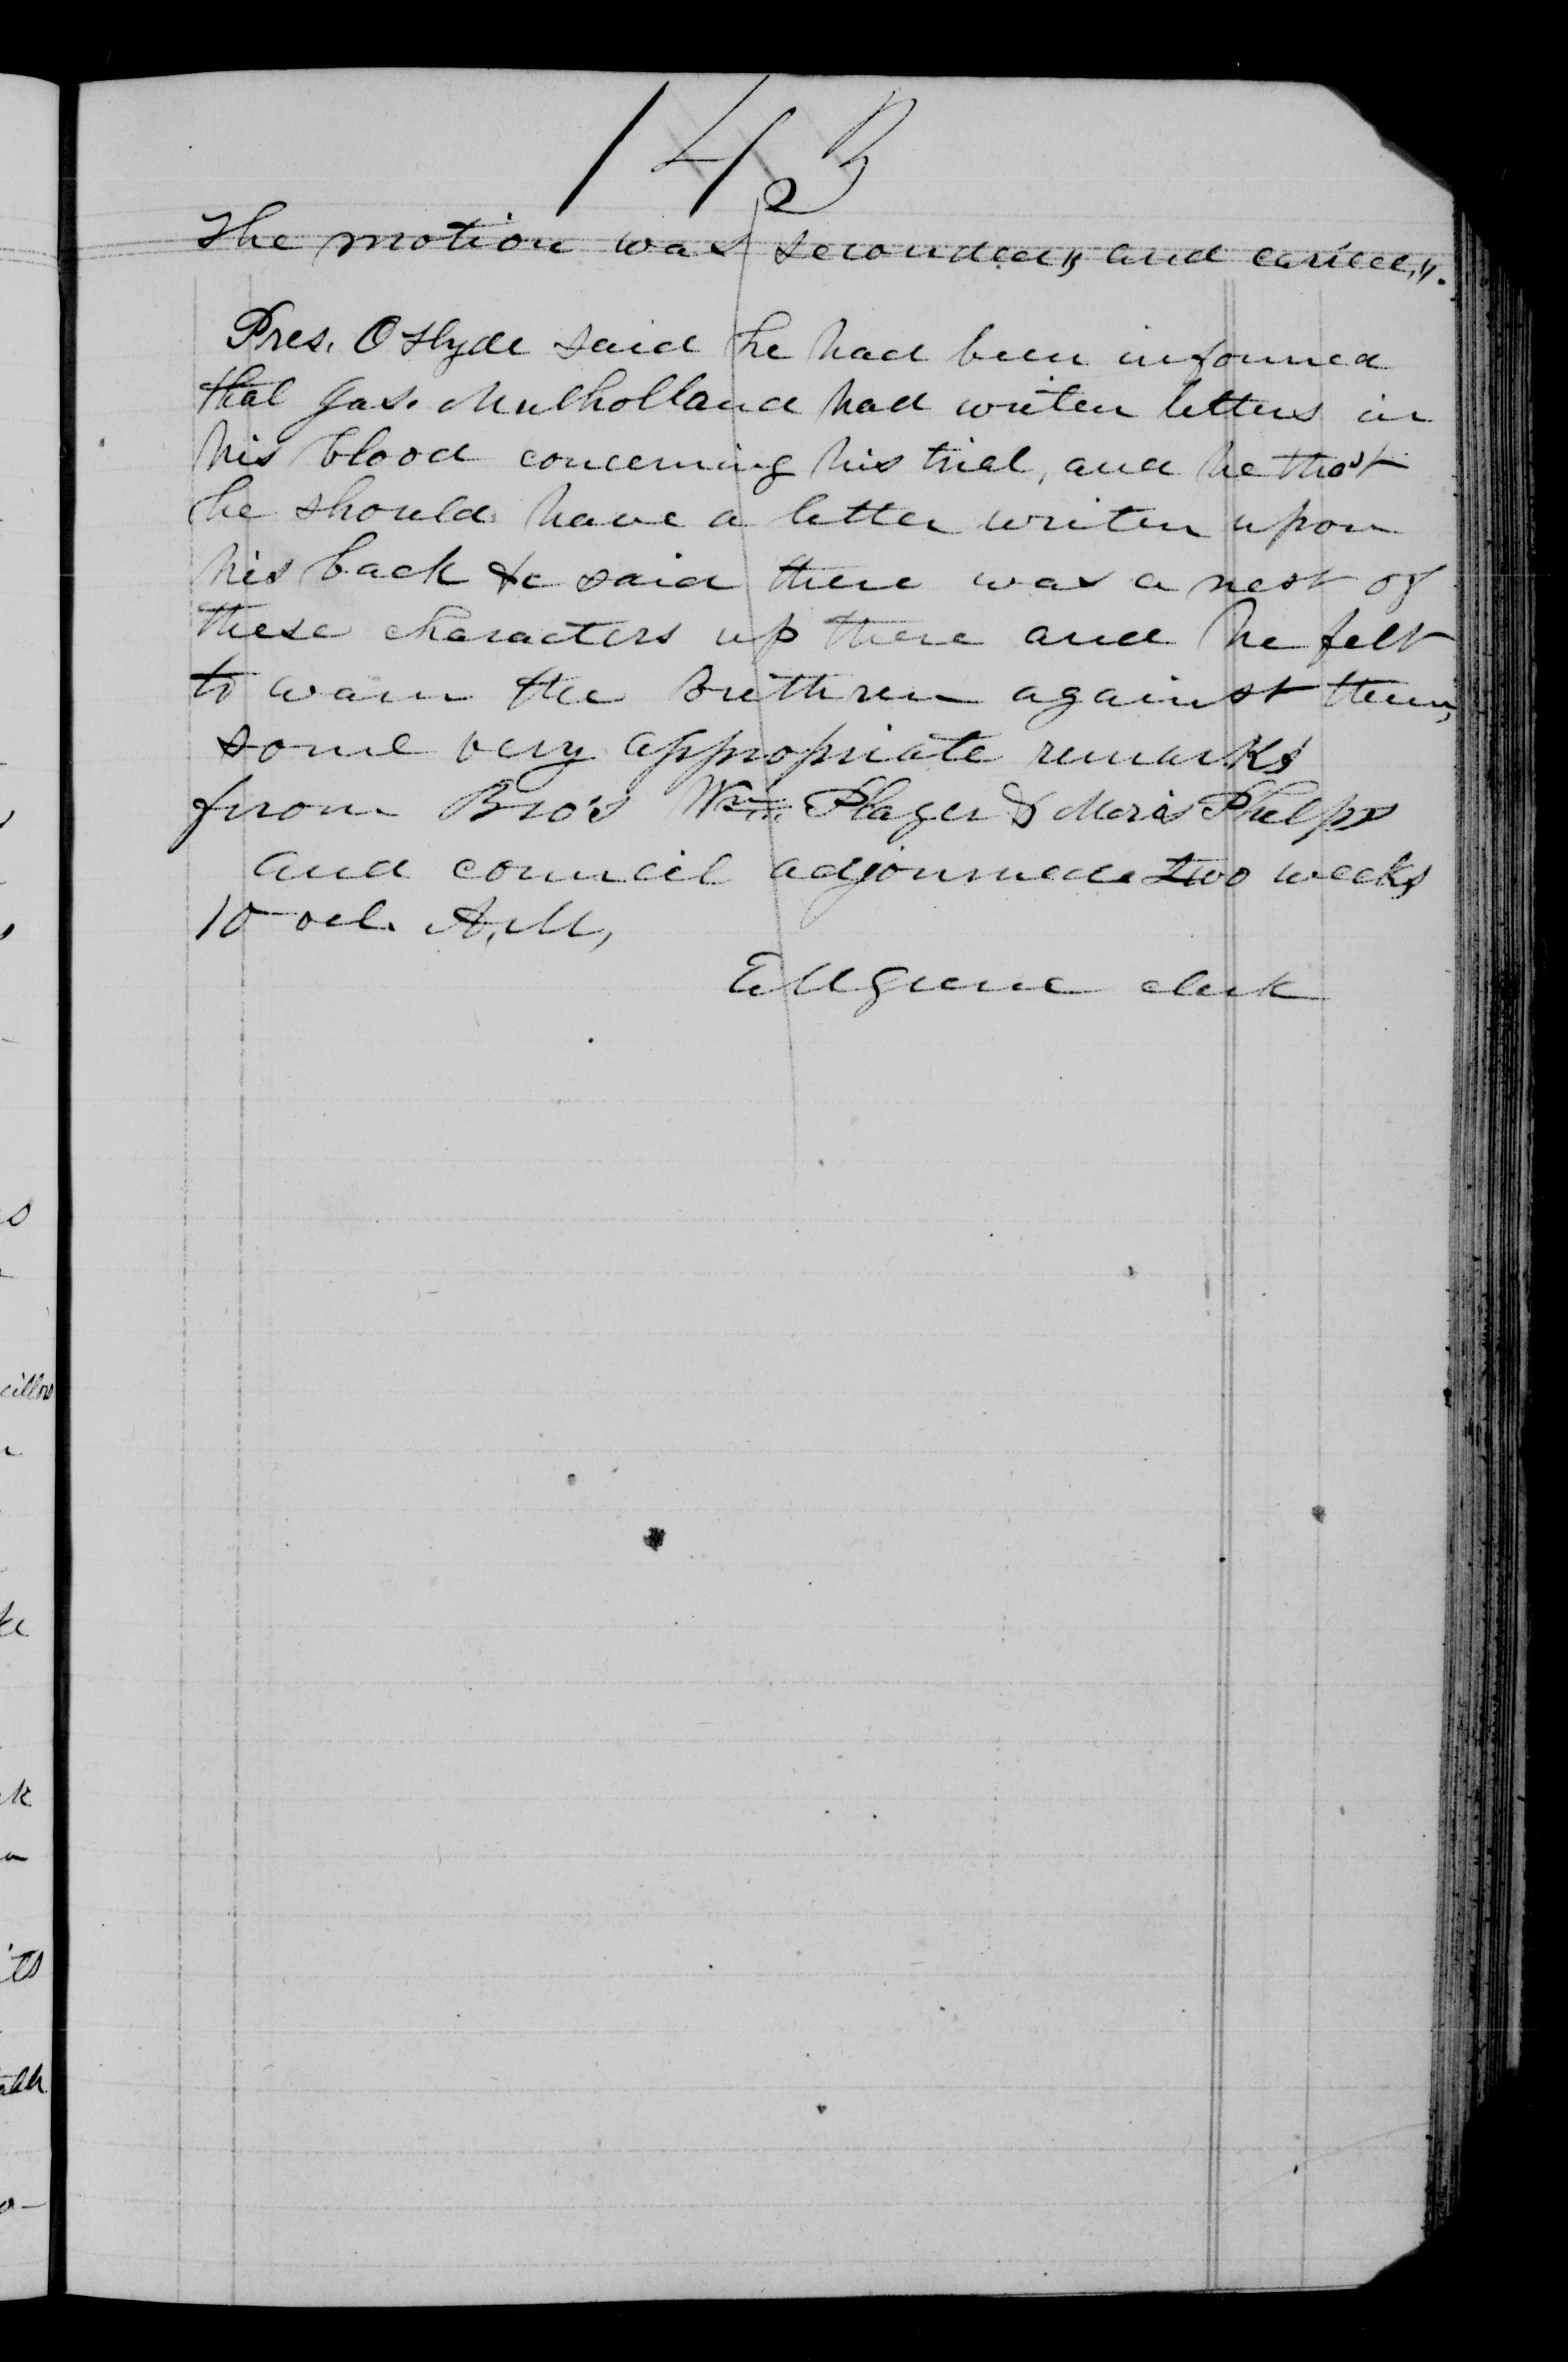 143
The motion was seconded, and carried,.
Pres. O Hyde said he had been informed
that Jas. Mulholland had writen letters in
his blood concerning his trial, and he tho't
he should have a letter writen upon
his back &c said there was a nest of
these characters up there and he felt
to warn the Brethren against them,
some very appropriate remarks
from Bro's Wm Player & Moris Phelps
and council adjourned two weeks
10 ocl. A.M,
E M Greene clerk